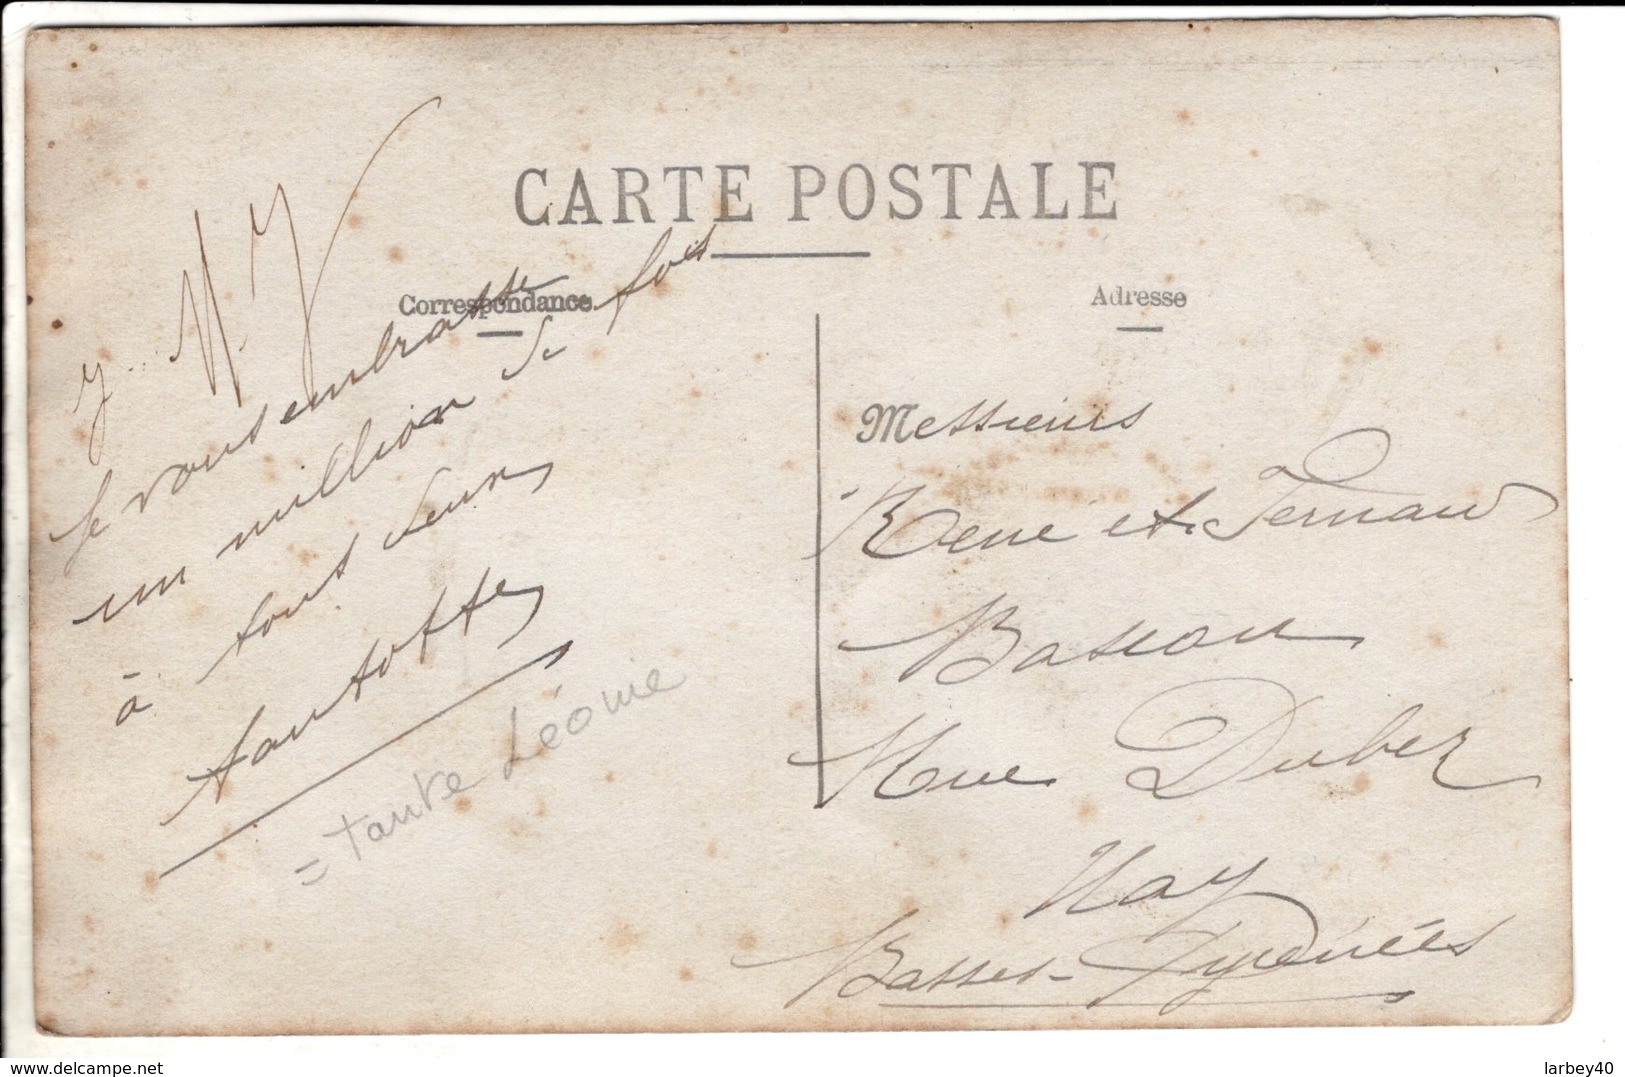 CARTE POSTALE
Correspondance
Je vous embrasse
un million de fois
à tous deux
tantotte
= tante Léonie
Adresse
Messieurs
René et Fernand
Bascou
Rue Duber
Nay
Basses-Pyrénées
www.delcampe.net
larbey40